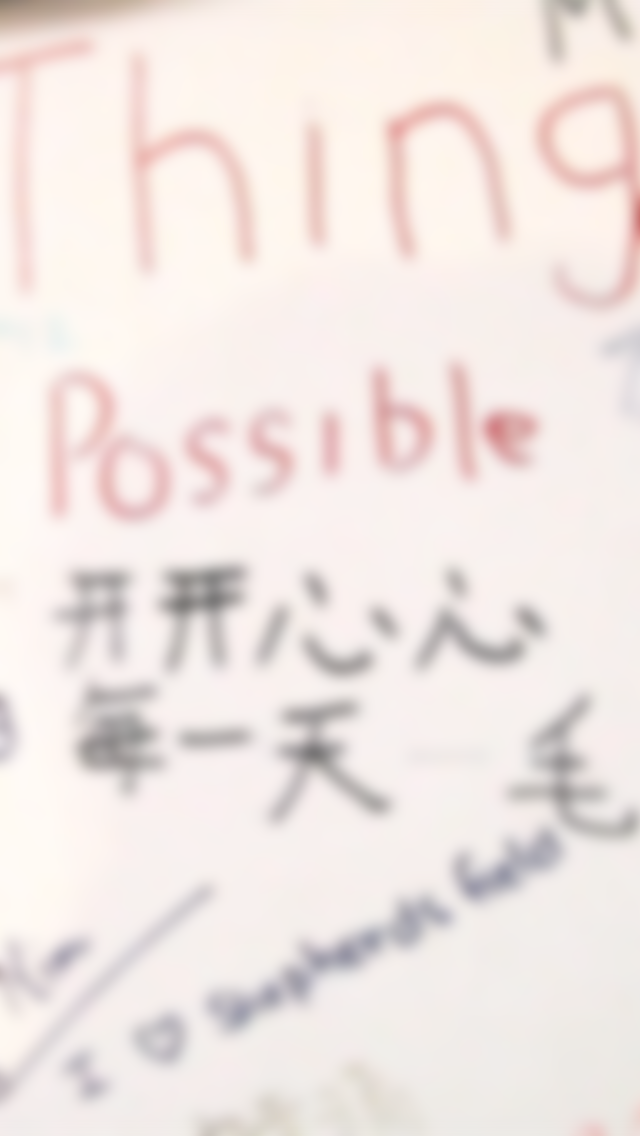 Thing
Possible
开开心心
每一天 毛
I ♡ Shepherds field